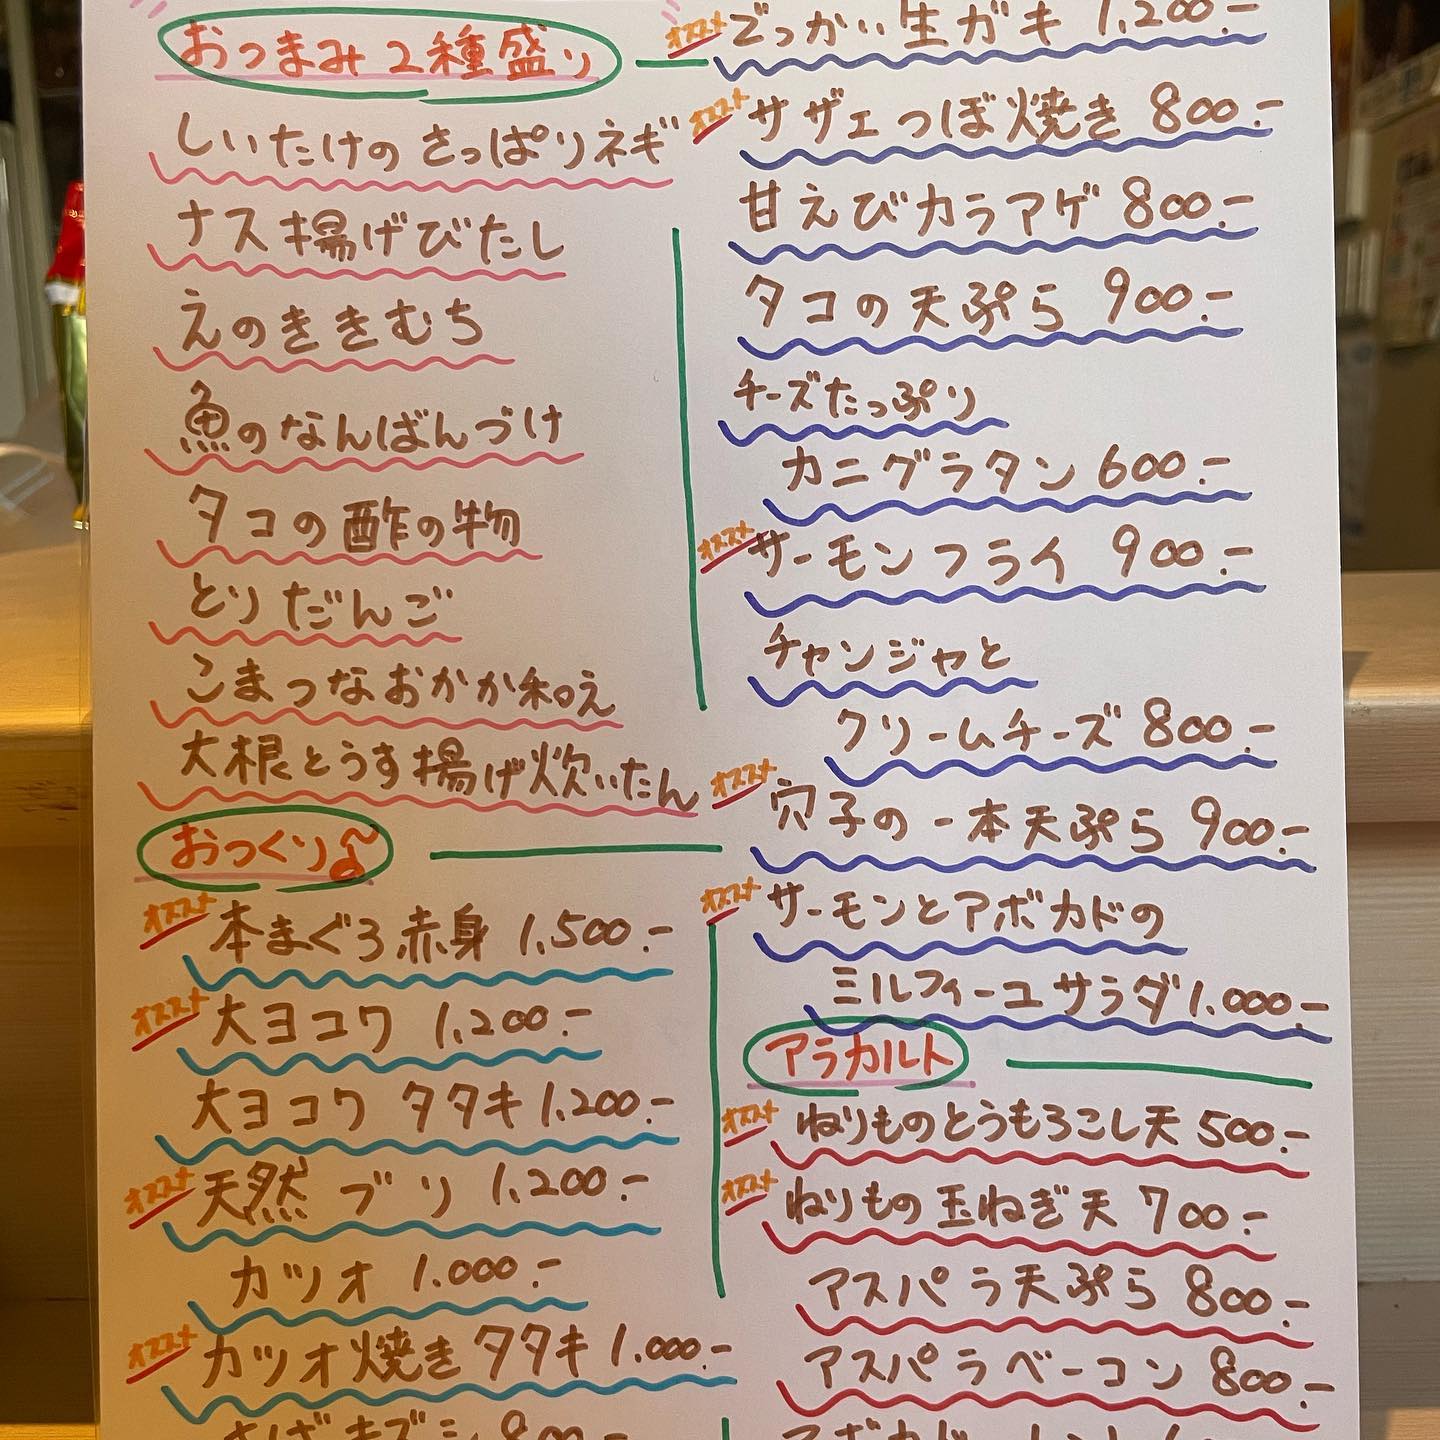 おつまみ2種盛り
しいたけのさっぱりネギ
ナス揚げびたし
えのききむち
魚のなんばんづけ
タコの酢の物
とりだんご
こまつなおかか和え
大根とうす揚げ炊いたん
おつくり
オススメ 本まぐろ赤身 1,500.-
オススメ 大ヨコワ 1,200.-
大ヨコワ タタキ 1,200.-
オススメ 天然 ブリ 1,200.-
カツオ 1.000.-
オススメ カツオ焼きタタキ 1.000.-
オススメ でっかい生ガキ 1,200.-
オススメ サザエつぼ焼き 800.-
甘えびカラアゲ 800.-
タコの天ぷら 900.-
チーズたっぷり
カニグラタン 600.-
オススメ サーモンフライ 900.-
チャンジャと
クリームチーズ 800.-
オススメ 穴子の一本天ぷら 900.-
オススメ サーモンとアボカドの
ミルフィーユサラダ 1.000.-
アラカルト
オススメ ねりものとうもろこし天 500.-
オススメ ねりもの玉ねぎ天 700.-
アスパラ天ぷら 800.-
アスパラベーコン 800.-